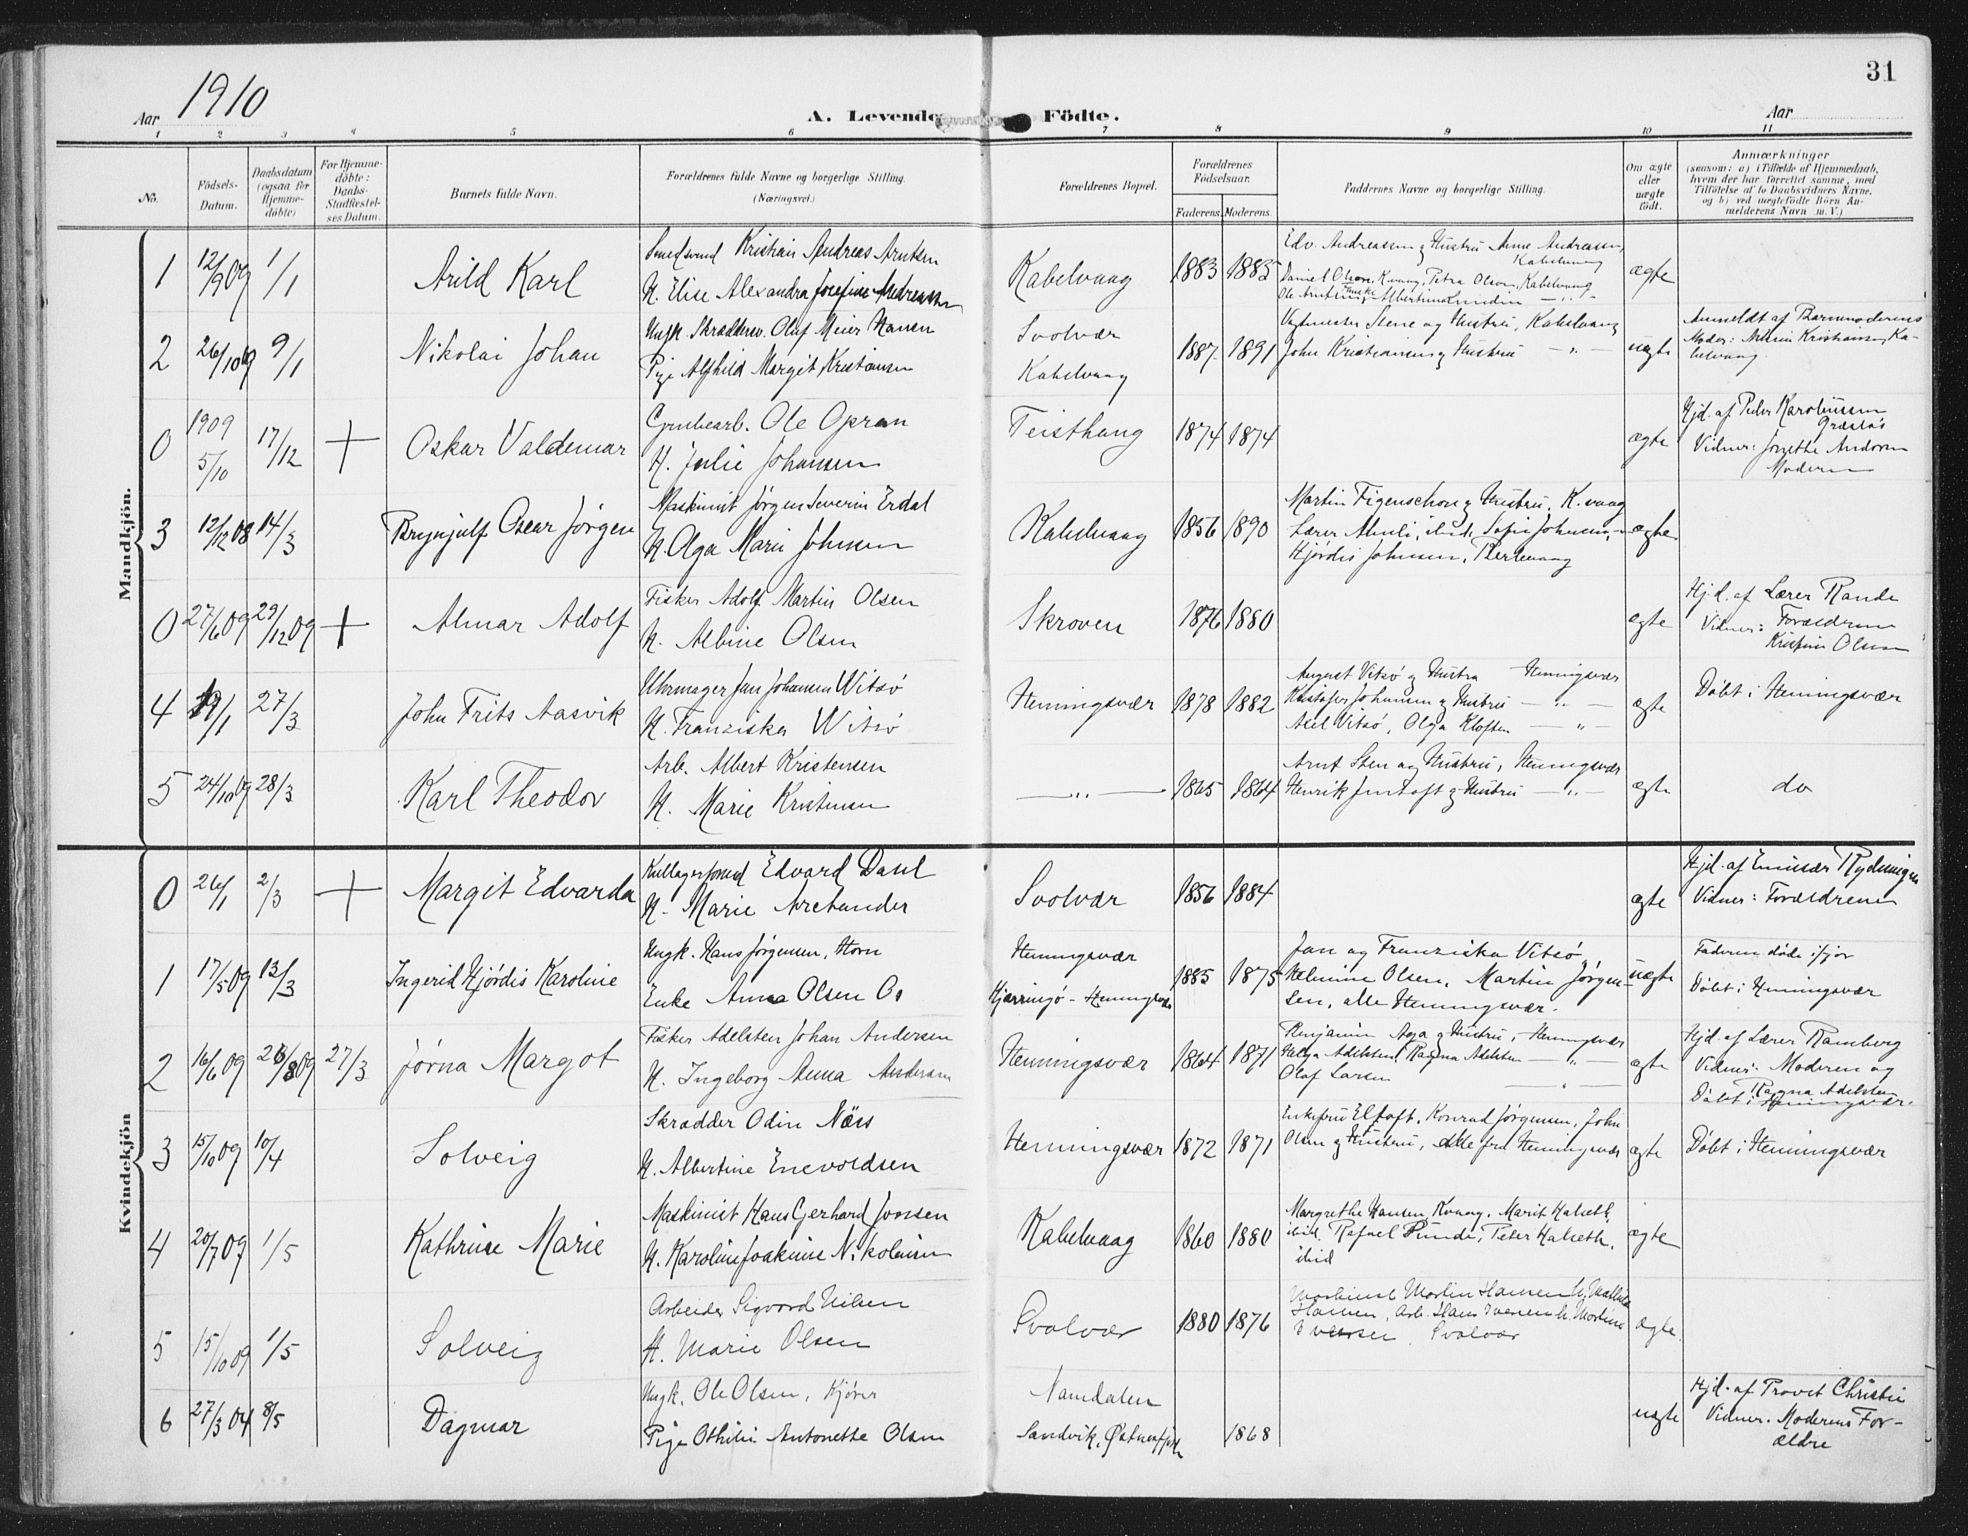 31
Aar 1910
A. Levende Födte.
Aar
1 2 3 4 5 6 7 8 9 10 11
No.
Födsels-
Datum.
Daabsdatum
(ogsaa for
Hjemme-
döbte)
For Hjemme-
döbte:
Daabs-
Stadfæstel-
ses Datum.
Barnets fulde Navn.
Forældrenes fulde Navne og borgerlige Stilling.
(Næringsvei.)
Forældrenes Bopæl.
Forældrenes
Födselsaar.
Faderens. Moderens.
Faddernes Navne og borgerlige Stilling.
Om ægte
eller
uægte
födt.
Anmærkninger
(saasom: a) i Tilfælde af Hjemmedaab,
hvem der har forrettet samme, med
Tilföielse af to Daabsvidners Navne,
og b) ved uægtefödte Börn An-
melderens Navn m. V.)
Mandkjön.
1 12/9 09 1/1 Arild Karl
Smedsvend Kristian Andreas Arntsen
H. Elise Alexandra Josefine Andreassen
Kabelvaag 1883 1885
Edv. Andreassen og Hustru Anne Andreassen,
Kabelvaag
Daniel Olsen, Kvaag, Petra Olsen, Kabelvaag
ægte
2 26/10 09 9/1 Nikolai Johan
Ungk. Skræddersv. Olaf Meier Hansen
Pige Alfhild Margit Kristiansen
Svolvær
Kabelvaag
1887. 1891
Stene og Hustru, Kabelvaag
John Kristiansen og Hustru — " —
uægte
Anmeldt af Barnemoderens
Moder: Kristiansen, Ka-
belvaag.
0 1909 5/10 17/12 + Oskar Valdemar
Grubearb. Ole Opran
H. Julie Johansen
Teisthaug 1874 1874
ægte
Hjd. af Peder Karolinssen
Vidner: Jorgethe Andorsen
Moderen
3 12/12 08 14/3 Brynjulf Oscar Jörgen
Maskinist Jørgen Severin Erdal
H. Olga Marie Johnsen
Kabelvaag 1856 1890
Martin Figenschou og Hustru, K.vaag
Lærer Almli, ibid, Sofie Johnsen,
Hjördis Johnsen, Berlevaag
ægte
0 27/6 09 29/12 09 + Almar Adolf
Fisker Adolf Martin Olsen
H. Albine Olsen
Skroven 1876 1880
ægte
Hj.d. af Lærer Rande
Vidner: Forældrene
Kristine Olsen
4 19/1 27/3 John Frits Aasvik
Uhrmager Jan Johansen Witsö
H. Franziska Witsö
Henningsvær 1878 1882
August Vitsö og Hustru Henningsvær
Kristofer Johansen og Hustru — " —
Axel Vitsö, Olga Kloften — " —
ægte
Döbt i Henningsvær
5 24/10 09 28/3 Karl Theodor
Arb. Albert Kristensen
H. Marie Kristensen
— " — 1865 1864
Arnt Sten og Hustru, Henningsvær
Henrik Jentoft og Hustru — " —
ægte
do
Kvindekjön
0 26/1 2/3 + Margit Edvarda
Edvard Dasel
H. Marie Arctander
Svolvær 1856 1884
ægte
Hjd. af Emissær Rydningen
Vidner: Forældrene
1 17/5 09 13/3 Ingerid Hjördis Karoline
Ungk. Hans Jörgensen, Horn
Enke Anna Olsen Os
Henningsvær
Kjærringö - Henningsvær
1885 1875
Jan og Franziska Vitsö,
Helmine Olsen, Martin Jörgen-
sen, alle Henningsvær.
uægte
Faderen döde ifjor
Döbt i Henningsvær
2 16/6 09 26/8 09 27/3 Jörna Margot
Fisker Adelsten Johan Andersen
H. Ingeborg Anna Andersen
Henningsvær 1864 1871
Benjamin Aga og Hustru, Henningsvær
Helga Adelsten, Ragna Adelsten — " —
Olaf Larsen — " —
ægte
Hjd. af Lærer Ramberg
Vidner: Moderen og
Ragna Adelsten
Döbt i Henningsvær.
3 15/10 09 10/4 Solveig
Skrædder Odin Näss
H. Albertine Enevoldsen
Henningsvær 1872 1871
Enkefru Eltoft, Konrad Jørgensen, John
Olsen og Hustru, alle fra Henningsvær
ægte
Döbt i Henningsvær
4 20/7 09 1/5 Kathrine Marie
Maskinist Hans Gerhard Jonsen
H. Karoline Joakine Nikolaisen
Kabelvaag 1860 1880
Margrethe Hansen, Kvaag, Marit Halseth,
ibid. Rafael Punde, Peter Halseth,
ibid
ægte
5 15/10 09 1/5 Solveig
Arbeider Sigvard Nilsen
H. Marie Olsen
Svolvær 1880 1876
Maskinist Martin Hansen h. Mathilde
Hansen, Arb. Hans Iversen h. Martine
Iversen, Svolvær
ægte.
6 27/3 04 8/5 Dagmar
Ungk. Ole Olsen, Kjörer
Pige Othilie Antonette Olsen
Namdalen
Sandvik, Østnesfjord
1868
uægte
Hjd. af Provst Christie
Vidner. Moderens For-
ældre